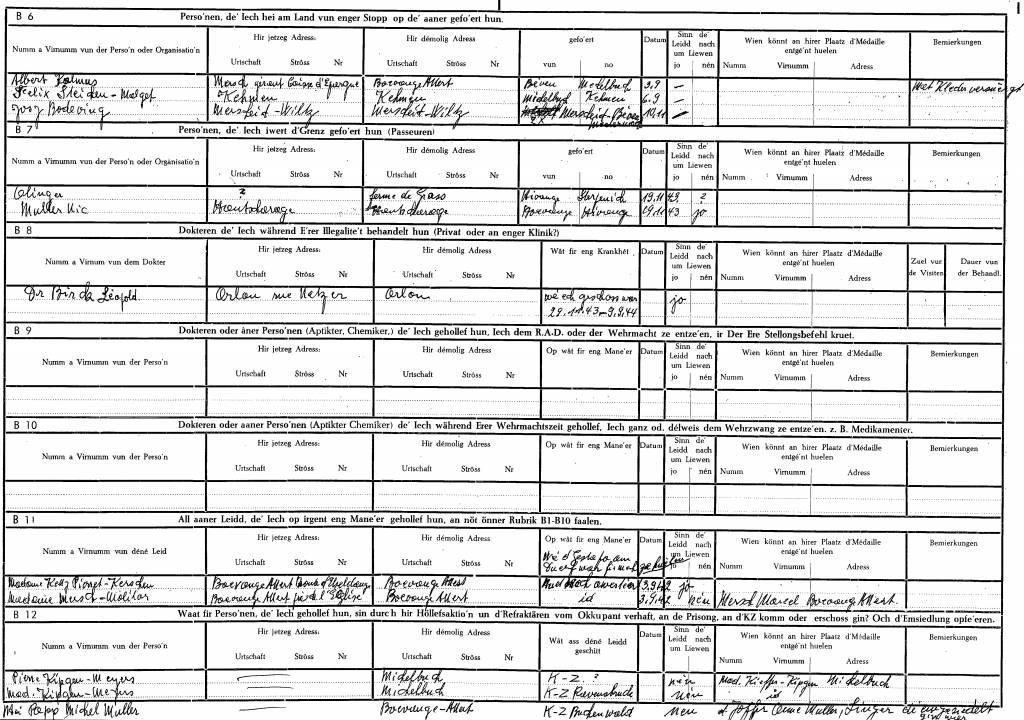 B 6 Perso'nen, de' Iech hei am Land vun enger Stopp op de' aaner gefo'ert hun.
Numm a Virnumm vun der Perso'n oder Organisatio'n Hir jetzeg Adress: Urtschaft Ströss Nr Hir démolig Adress Urtschaft Ströss Nr gefo'ert vun no Datum Sinn de' Leidd nach um Liewen jo nén Wien könnt an hirer Plaatz d'Médaille entgé'nt huelen Numm Virnumm Adress Bemierkungen
Albert Kalmus Mersch gérant Caisse d'Epargne Boevange Attert Biven Michelbuch 3.9
Felix Steiden-Malget Kehmen Kehmen Michelbuch Kehmen 6.9
Josy Bodeving Merscheid-Wiltz Merscheid-Wiltz Merscheid 10.11
B 7 Perso'nen, de' Iech iwert d'Grenz gefo'ert hun (Passeuren)
Numm a Virnumm vun der Perso'n oder Organisatio'n Hir jetzeg Adress: Urtschaft Ströss Nr Hir démolig Adress Urtschaft Ströss Nr gefo'ert vun no Datum Sinn de' Leidd nach um Liewen jo nén Wien könnt an hirer Plaatz d'Médaille entgé'nt huelen Numm Virnumm Adress Bemierkungen
Olinger ? ferme de Grass Hivange Sterpenich 19.11 43 ?
Muller Nic Hautcharage Hautcharage Boevange Hivange 19.11 43 jo
B 8 Dokteren de' Iech während E'rer Illegalite't behandelt hun (Privat oder an enger Klinik?)
Numm a Virnumm vun dem Dokter Hir jetzeg Adress: Urtschaft Ströss Nr Hir démolig Adress Urtschaft Ströss Nr Wât fir eng Krankhét Datum Sinn de' Leidd nach um Liewen jo nén Wien könnt an hirer Plaatz d'Médaille entgé'nt huelen Numm Virnumm Adress Zuel vun de Visiten Dauer vun der Behandl.
Dr Léopold Arlon rue Netzer Arlon wé ech geschoss war jo
29.11.43-9.9.44
B 9 Dokteren oder âner Perso'nen (Aptikter, Chemiker,) de' Iech gehollef hun, Iech dem R.A.D. oder der Wehrmacht ze entze'en, ir Der Ere Stellongsbefehl kruet.
Numm a Virnumm vun der Perso'n Hir jetzeg Adress: Urtschaft Ströss Nr Hir démolig Adress Urtschaft Ströss Nr Op wât fir eng Mane'er Datum Sinn de' Leidd nach um Liewen jo nén Wien könnt an hirer Plaatz d'Médaille entgé'nt huelen Numm Virnumm Adress Bemierkungen
B 10 Dokteren oder aaner Perso'nen (Aptikter Chemiker) de' Iech während Erer Wehrmachtszeit gehollef, Iech ganz od. délweis dem Wehrzwang ze entze'en. z. B. Medikamenter.
Numm a Virnumm vun der Perso'n Hir jetzeg Adress: Urtschaft Ströss Nr Hir démolig Adress Urtschaft Ströss Nr Op wât fir eng Mane'er Datum Sinn de' Leidd nach um Liewen jo nén Wien könnt an hirer Plaatz d'Médaille entgé'nt huelen Numm Virnumm Adress Bemierkungen
B 11 All aaner Leidd, de' Iech op irgent eng Mane'er gehollef hun, an nöt önner Rubrik B1-B10 faalen.
Numm a Virnumm vun déné Leid Hir jetzeg Adress: Urtschaft Ströss Nr Hir démolig Adress Urtschaft Ströss Nr Op wât fir eng Mane'er Datum Sinn de' Leidd nach um Liewen jo nén Wien könnt an hirer Plaatz d'Médaille entgé'nt huelen Numm Virnumm Adress Bemierkungen
Wé d'Gestapo am Duerf wah
Madame Ketty Pierret-Kerschen Boevange Attert Boevange Attert 3.9.42 jo
Madame Mersch-Molitor Boevange Attert Boevange Attert id 3.9.42 nén Mersch Marcel Boevange Attert.
B 12 Waat fir Perso'nen, de' Iech gehollef hun, sin durch hir Höllefsaktio'n un d'Refraktären vom Okkupant verhaft, an de Prisong, an d'KZ komm oder erschoss gin? Och d'Emsiedlung opfe'eren.
Numm a Virnumm vun der Perso'n Hir jetzeg Adress: Urtschaft Ströss Nr Hir démolig Adress Urtschaft Ströss Nr Wât ass déné Leidd geschitt Datum Sinn de' Leidd nach um Liewen jo nén Wien könnt an hirer Plaatz d'Médaille entgé'nt huelen Numm Virnumm Adress Bemierkungen
Pierre Kipgen-Meyers Michelbuch K-Z. ? nén Mad. Kieffer-Kipgen Michelbuch
Mad. Kipgen-Meyers Michelbuch K-Z Ravensbruck nén id
Papp Michel Muller Boevange-Attert K-Z Buchenwald nén Muller,